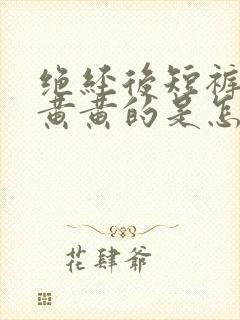 绝经后短裤
黄黄的是怎
花肆爷